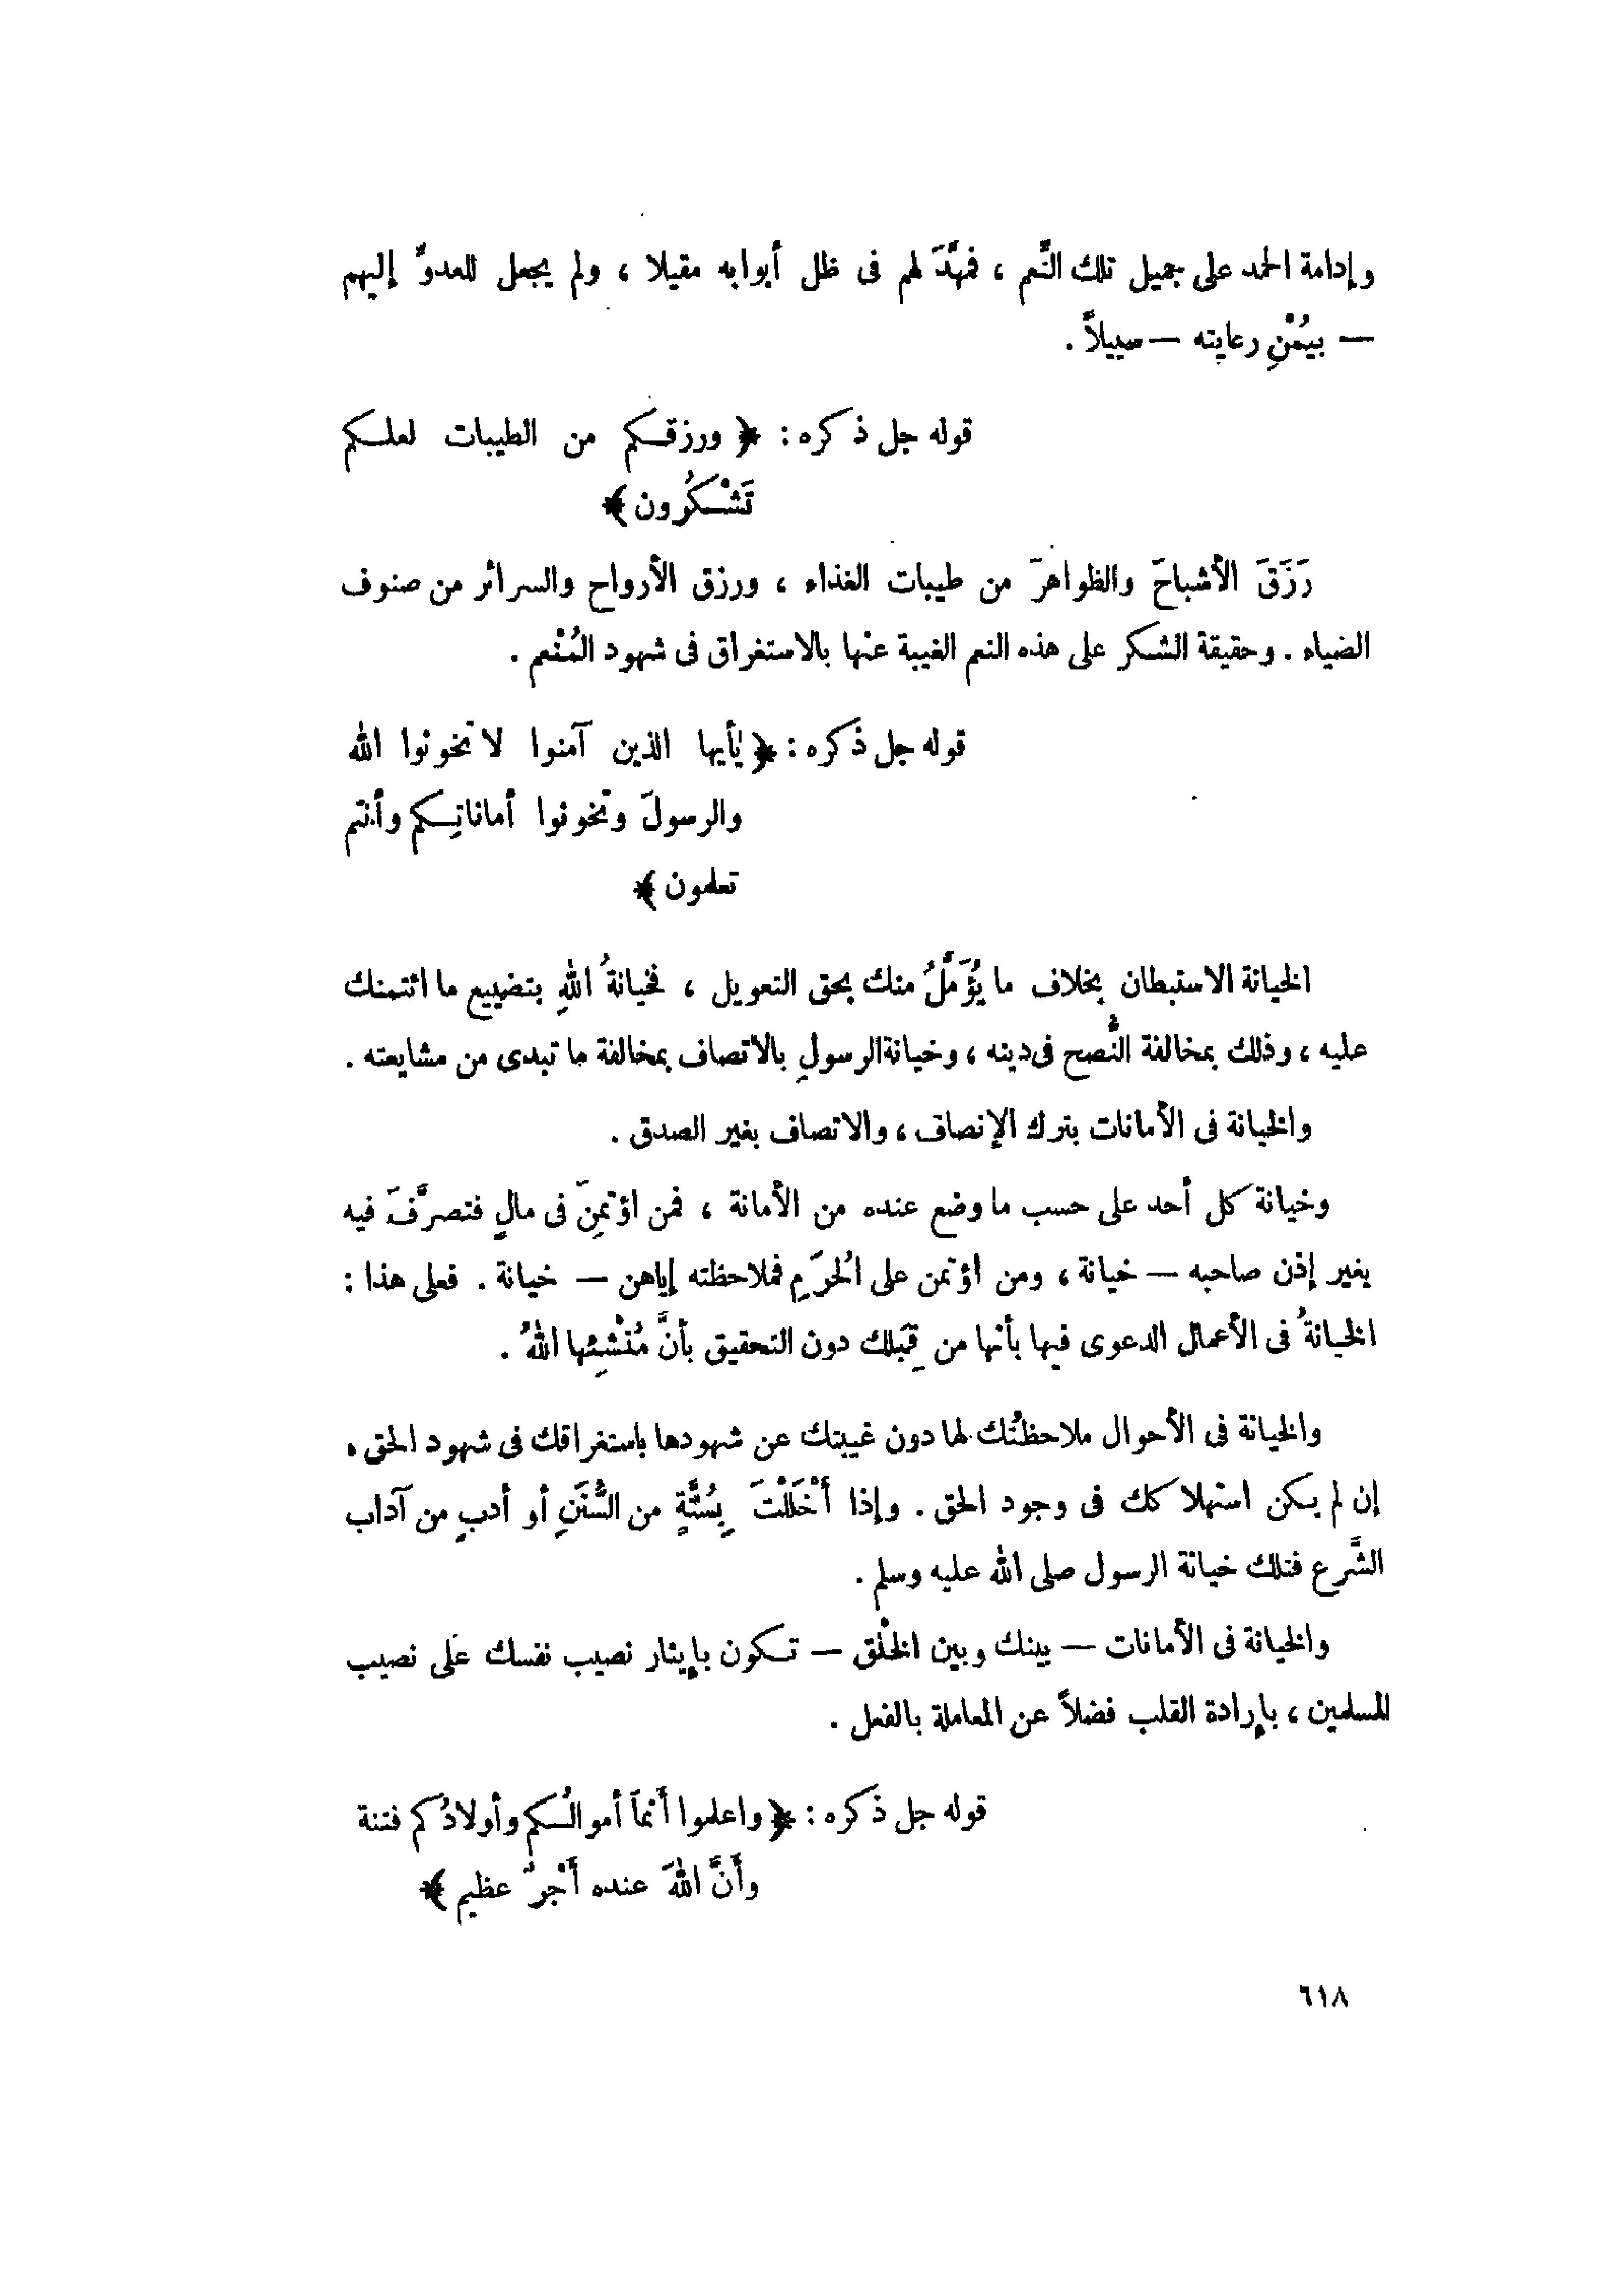 وإدامة الحمد على جميل تلك النَّعم ، فمهَّدَ لهم فى ظل أبوابه مقيلا ، ولم يجعل للعدوِّ إليهم
— بيُمْنِ رعايته — سبيلاً .
قوله جل ذكره : ﴿ ورزقكم من الطيبات لعلكم
تَشْكُرون ﴾
رَزَقَ الأشباحَ والظواهرَ من طيبات الغذاء ، ورزق الأرواح والسرائر من صنوف
الضياء . وحقيقة الشكر على هذه النعم الغيبة عنْها بالاستغراق فى شهود المُنْعم .
قوله جل ذكره : ﴿ يٰأيها الذين آمنوا لا تخونوا الله
والرسولَ وتخونوا أماناتِكم وأنتم
تعلمون ﴾
الخيانة الاستبطان بخلاف ما يُؤَمَّلُ منك بحق التعويل ، فخيانةُ اللهِ بتضييع ما ائتمنك
عليه ، وذلك بمخالفة النُّصح فى دينه ، وخيانة الرسولِ بالاتصاف بمخالفة ما تبدى من مشايعته .
والخيانة فى الأمانات بترك الإنصاف ، والاتصاف بغير الصدق .
وخيانة كل أحد على حسب ما وضع عنده من الأمانة ، فمن اؤتمِنَ فى مالٍ فتصرَّفَ فيه
بغير إذن صاحبه — خيانة ، ومن اؤتمن على الحُرَمِ فملاحظته إياهن — خيانة . فعلى هذا :
الخيانةُ فى الأعمال الدعوى فيها بأنها من قِبَلك دون التحقيق بأنَّ مُنْشِئها اللهُ .
والخيانة فى الأحوال ملاحظتُك لها دون غيبتك عن شهودها باستغراقك فى شهود الحق ،
إن لم يكن استهلاكك فى وجود الحق . وإذا أخْلَلْتَ بِسُنَّةٍ من السُّنَنِ أو أدبٍ من آداب
الشَّرع فتلك خيانة الرسول صلى الله عليه وسلم .
والخيانة فى الأمانات — بينك وبين الخلْق — تكون بإيثار نصيب نفسك على نصيب
المسلمين ، بإرادة القلب فضلاً عن المعاملة بالفعل .
قوله جل ذكره : ﴿ واعلموا أنمآ أموالُكم وأولادُكم فتنة
وأَنَّ اللهَ عنده أَجْرٌ عظيم ﴾
٦١٨